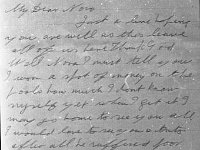 My Dear Nora
Just a line hoping
you are well as this leaves
all of us here Thank God
Well Nora I must tell you
I won a spot of money on the
pools how much I dont know
myself yet when I get it I
may go home to see you all
I would love to see you
after all he suffered poor